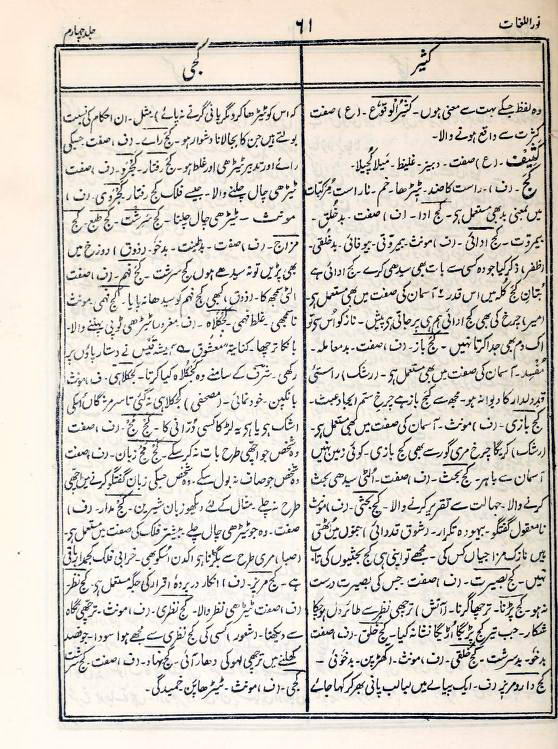 نور اللغات
۶۱
جلد چہارم
کثیر
کجی
وہ لفظ جسکے بہت سے معنی ہوں۔ کثیرُ الوقوع۔ (ع) صفت
کثرت سے واقع ہونے والا۔
کثیف۔ (ع) صفت۔ دبیز۔ غلیظ۔ مَیلا کُچیلا۔
کج۔ (ف) راست کا ضد۔ ٹیڑھا۔ خم۔ ناراست مُرکبات
میں معنی بد بھی مستعمل ہی۔ کج ادا۔ (ف) صفت۔ بدخُلق۔
بیمروت۔ کج ادائی۔ (ف) مونث۔ بیمروتی۔ بیوفائی۔ بدخلقی۔
(ظفر) ذکر کیا جو وہ کسی سے بات بھی سیدھی کرے۔ کج ادائی ہے
بُتانِ کج کلہ میں اس قدر۔ آسمان کی صفت میں بھی مستعمل ہی۔
(امیر) چرخ کی بھی کج ادائی ہم ہی پر جاتی ہی پیش۔ ناز کو اُس سی تو
اک دم بھی جدا کرتا نہیں۔ کج باز۔ (ف) صفت۔ بدمعاملہ۔
مُفسد۔ آسمان کی صفت میں بھی مستعمل ہی۔ (رشک) راستی
قید و لدار کا دیوانہ ہو۔ مجھ سے کج باز ہے چرخ ستم ایجاد عبث۔
کج بازی۔ (ف) مونث۔ آسمان کی صفت میں بھی مستعمل ہی۔
(رشک) کریگا چرخ مری گور سے بھی کج بازی۔ کوئی زمیں نہیں
آسمان سے باہر۔ کج بحث۔ (ف) صفت۔ اُلٹی سیدھی بحث
کرنے والا۔ جہالت سے تقریر کرنے والا۔ کج بحثی۔ (ف) مونث
نامعقول گفتگو۔ بیہودہ تکرار۔ (شوق قدوائی)
ہیں نازک مزاجیاں کس کی۔ مجھے تو اپنی ہی کج بحثیوں کی تاب
نہیں۔ کج بصیرت۔ (ف) صفت۔ جس کی بصیرت درست
نہ ہو۔ کج پڑنا۔ ترچھا گرنا۔ (آتش) ترچھی نظر سے طائر دل ہو چکا
شکار۔ جب تیر کج پڑیگا اُڑیگا نشانہ کیا۔ کج خلق۔ (ف) صفت
بدخو۔ بدسرشت۔ کج خلقی۔ (ف) مونث۔ اکھڑپن۔ بدخوئی۔
کج دار و مریز (ف)۔ ایک پیالے میں لبالب پانی بھر کر کہا جائے
کہ اس کو ٹیڑھا کرو مگر پانی گرنے نہ پائے) مثل۔ ان احکام کی نسبت
بولتے ہیں جن کا بجالانا دشوار ہو۔ کج رائے۔ (ف) صفت۔ جسکی
رائے اور تدبیر ٹیڑھی اور غلط ہو۔ کج رفتار۔ کجرو۔ (ف) صفت
ٹیڑھی چال چلنے والا۔ جیسے فلک کج رفتار۔ کجروی۔ (ف)
مونث۔ ٹیڑھی چال چلنا۔ کج سرشت۔ کج طبع۔ کج
مزاج۔ (ف) صفت۔ بدطینت۔ بدخو۔ (ذوق) دوزخ میں
بھی پڑیں تو نہ سیدھے ہوں کج سرشت۔ کج فہم۔ (ف) صفت
الٹی سمجھ کا۔ (ذوق) کبھی کج فہم کو سیدھا نہ پایا۔ کج فہمی۔ مونث
ناسمجھی۔ غلط فہمی۔ کجکلاہ۔ (ف) مغرور۔ ٹیڑھی ٹوپی پہننے والا۔
بانکا ترچھا۔ کنایۃً معشوق
رکھی۔ شرف کے سامنے وہ کجکلاہ کیا کرتا۔ کجکلاہی۔ (ف) مونث
بانکپن۔ خود نمائی۔ (مصحفی) کجکلاہی نہ گئی تا سر مژگاں اسکی
اشک ہی یا یہ لڑکا کسی کا۔ کج مج۔ (ف) صفت
وہ شخص جو اچھی طرح بات نہ کر سکے۔ کج مج زبان۔ (ف) صفت
وہ شخص جو صاف نہ بول سکے۔ وہ شخص جسکی زبان گفتگو کرنے میں اچھی
طرح نہ چلے۔ کج مدار۔ (ف)
صفت۔ وہ جو ٹیڑھی چال چلے۔ بیشتر فلک کی صفت میں مستعمل ہی۔
(صبا) مری طرح سے بگڑنا ہو اک دن اسکو بھی۔ خرابی فلک کجمدار باقی
ہے۔ کج مریز۔ (ف) انکار درپردہ اقرار کی جگہ مستعمل ہی۔ کج نظر
(ف) صفت ٹیڑھی نظر والا۔ کج نظری۔ (ف) مونث۔ ترچھی نگاہ
سے دیکھنا۔ (شعور) کسی کی کج نظری سے مجھے ہوا سودا۔ جو فصد
کھلنے میں ترچھی لہو کی دھار آئی۔ کج نہاد۔ (ف) صفت۔ کج سرشت
کجی۔ (ف) مونث۔ ٹیڑھاپن۔ خمیدگی۔